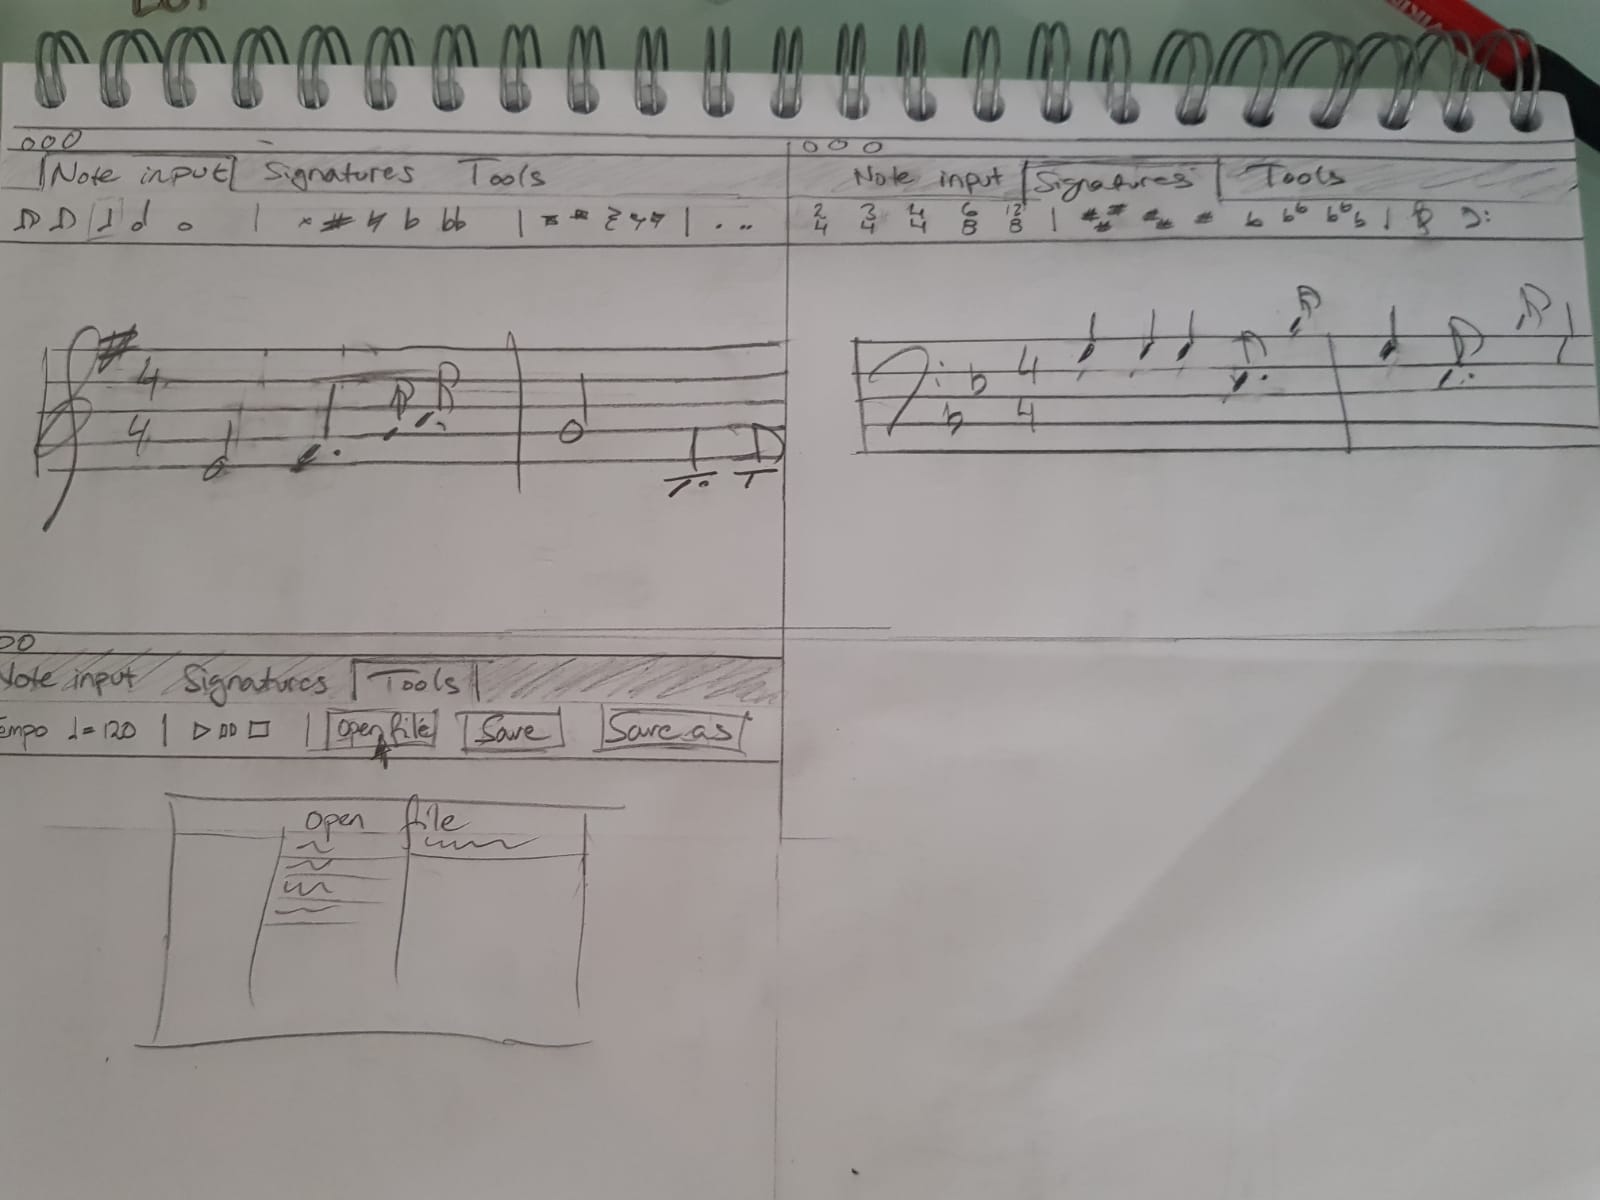 Note input Signatures Tools
Note input Signatures Tools
x # ♮ b bb
2/4 3/4 4/4 6/8 12/8
4
4
b 4
b 4
Note input Signatures Tools
empo ♩=120 | ▷ ▯▯ □ | Open file Save Save as
Open file